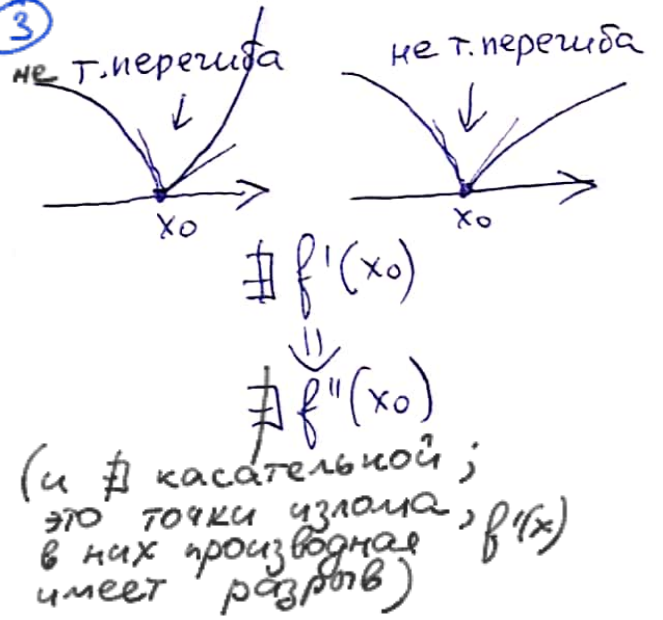 3
не т. перегиба
не т. перегиба
x₀
x₀
∄ f'(x₀)
⇓
∄ f''(x₀)
(и ∄ касательной;
это точки излома,
в них производная f'(x)
имеет разрыв)